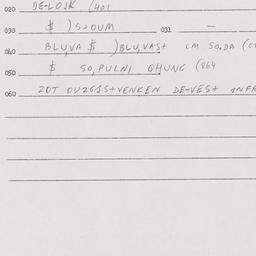 020 DE-LOJK (401
030 $ )SZOUM 031 —
040 BLU,VA $ )BLU,VAS+ CM SO,DA (
050 $ SO,PULNI GHUNG (864
060 ZDT OUZGAS+VENKEN DE-VES+ ANFR